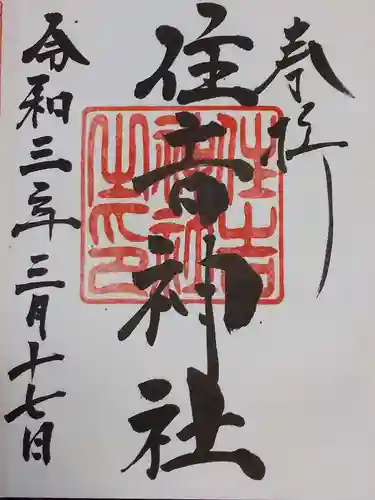 奉拝
住吉神社
令和三年三月十七日
住吉
神社
之印